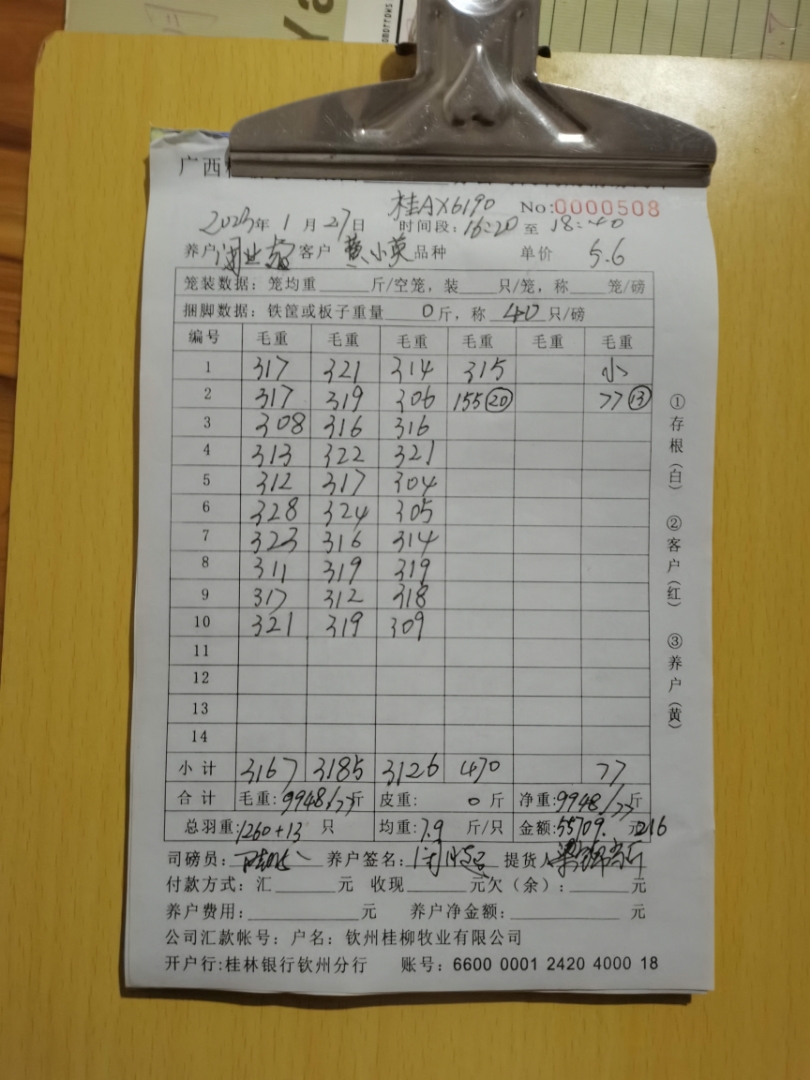 omorrows
Ya
广西
桂AX6190 No:0000508
2023年 1 月 27日 时间段:16:20 至 18:40
养户 客户 黄小英 品种 单价 5.6
笼装数据: 笼均重 斤/空笼, 装 只/笼, 称 笼/磅
捆脚数据: 铁筐或板子重量 0斤, 称 40 只/磅
编号 毛重 毛重 毛重 毛重 毛重 毛重
1 317 321 314 315 小
2 317 319 306 155⑳ 77⑬
3 308 316 316
4 313 322 321
5 312 317 304
6 328 324 305
7 323 316 314
8 311 319 319
9 317 312 318
10 321 319 309
11
12
13
14
小计 3167 3185 3126 470 77
合计 毛重:9948/77斤 皮重: 0 斤 净重:9948/77斤
总羽重:1260+13 只 均重:7.9 斤/只 金额:55709. 元 216
司磅员: 养户签名: 提货人
付款方式: 汇 元 收现 元欠(余): 元
养户费用: 元 养户净金额: 元
公司汇款帐号: 户名: 钦州桂柳牧业有限公司
开户行:桂林银行钦州分行 账号: 6600 0001 2420 4000 18
①存根(白) ②客户(红) ③养户(黄)